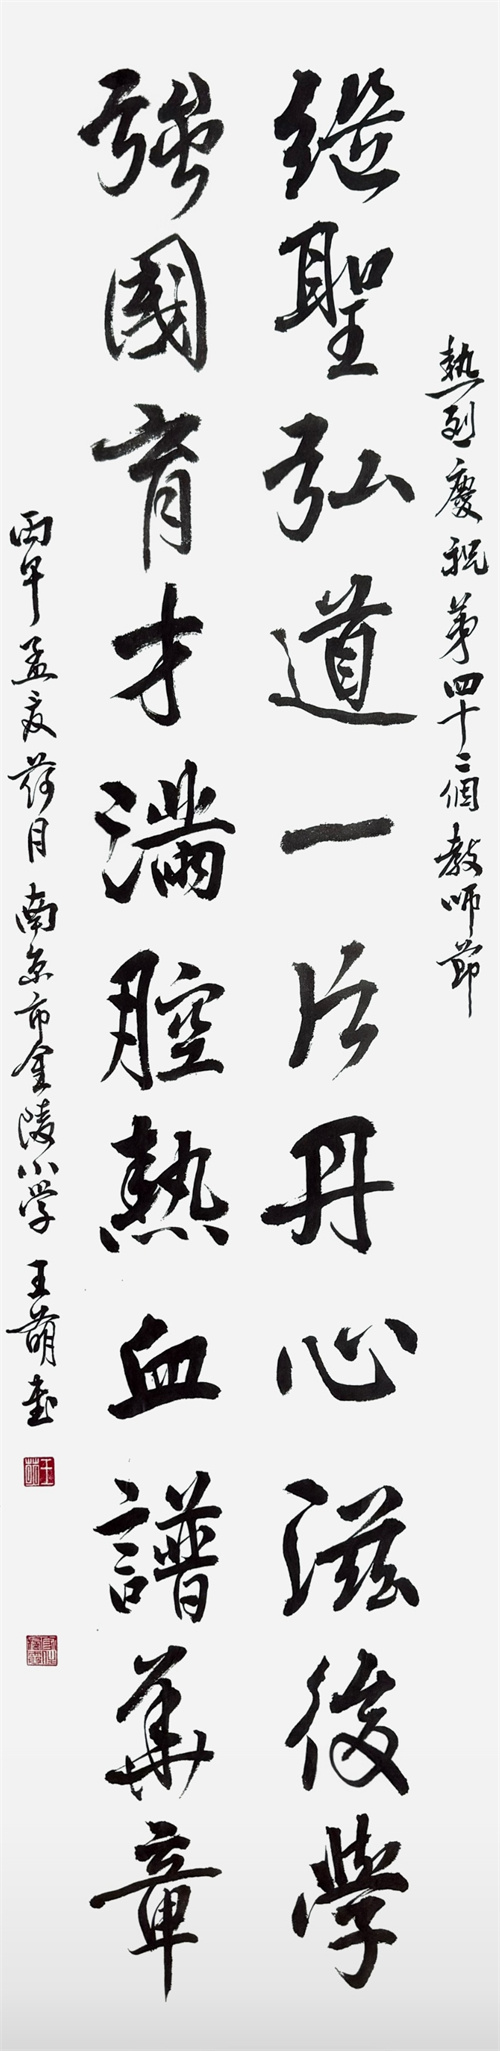 熱烈慶祝第四十二個教師節
繼聖弘道一片丹心滋後學
強國育才滿腔熱血譜華章
丙午孟夏荷月南京市金陵小学王萌書
王萌